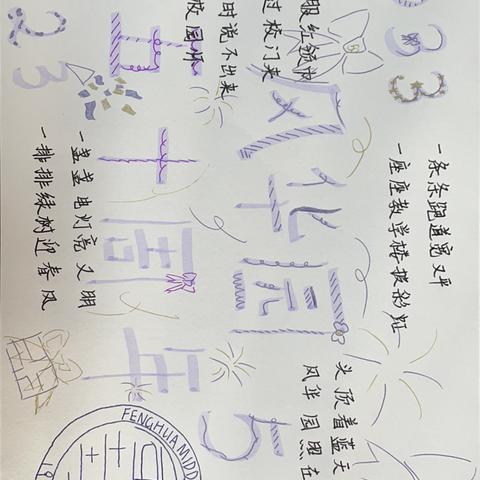 33
23
服红领巾
过校门来
时说不出来
校园啊
风华园
五十周年
一条条跑道宽又平
一座座教学楼披彩虹
一盏盏电灯亮又明
一排排绿树迎春风
头顶着蓝天
风华园照在
5
FENGHUA MIDD